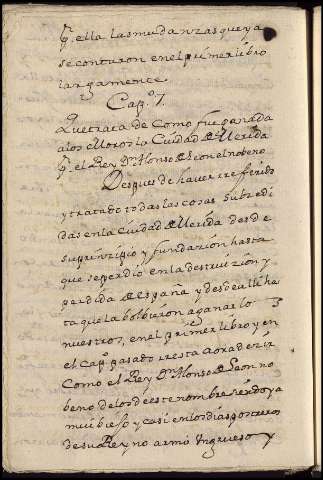 pr. ella las mudanzas que ya
se contaron en el primer libro
largamente
Cap.º 7.
Que trata de Como fue ganada
a los Moros la Ciudad de Merida
pr. el Rey Dn. Alonso de Leon el nobeno
Despues de haver referido
y tratado todas las cosas subzedi
das en la Ciudad de Merida desde
su prinzipio y fundazion hasta
que se perdio en la destruizion y
perdida de España y desde alli ha
ta que la bolbieron a ganar lo
nuestros, en el primer libro y en
el Cap.º pasado resta aora dezir
Como el Rey Dn. Alonso de Leon no
beno de los de este nombre siendo ya
mui biejo y casi en los dias postreros
de su Reyno armó Ingruesso y